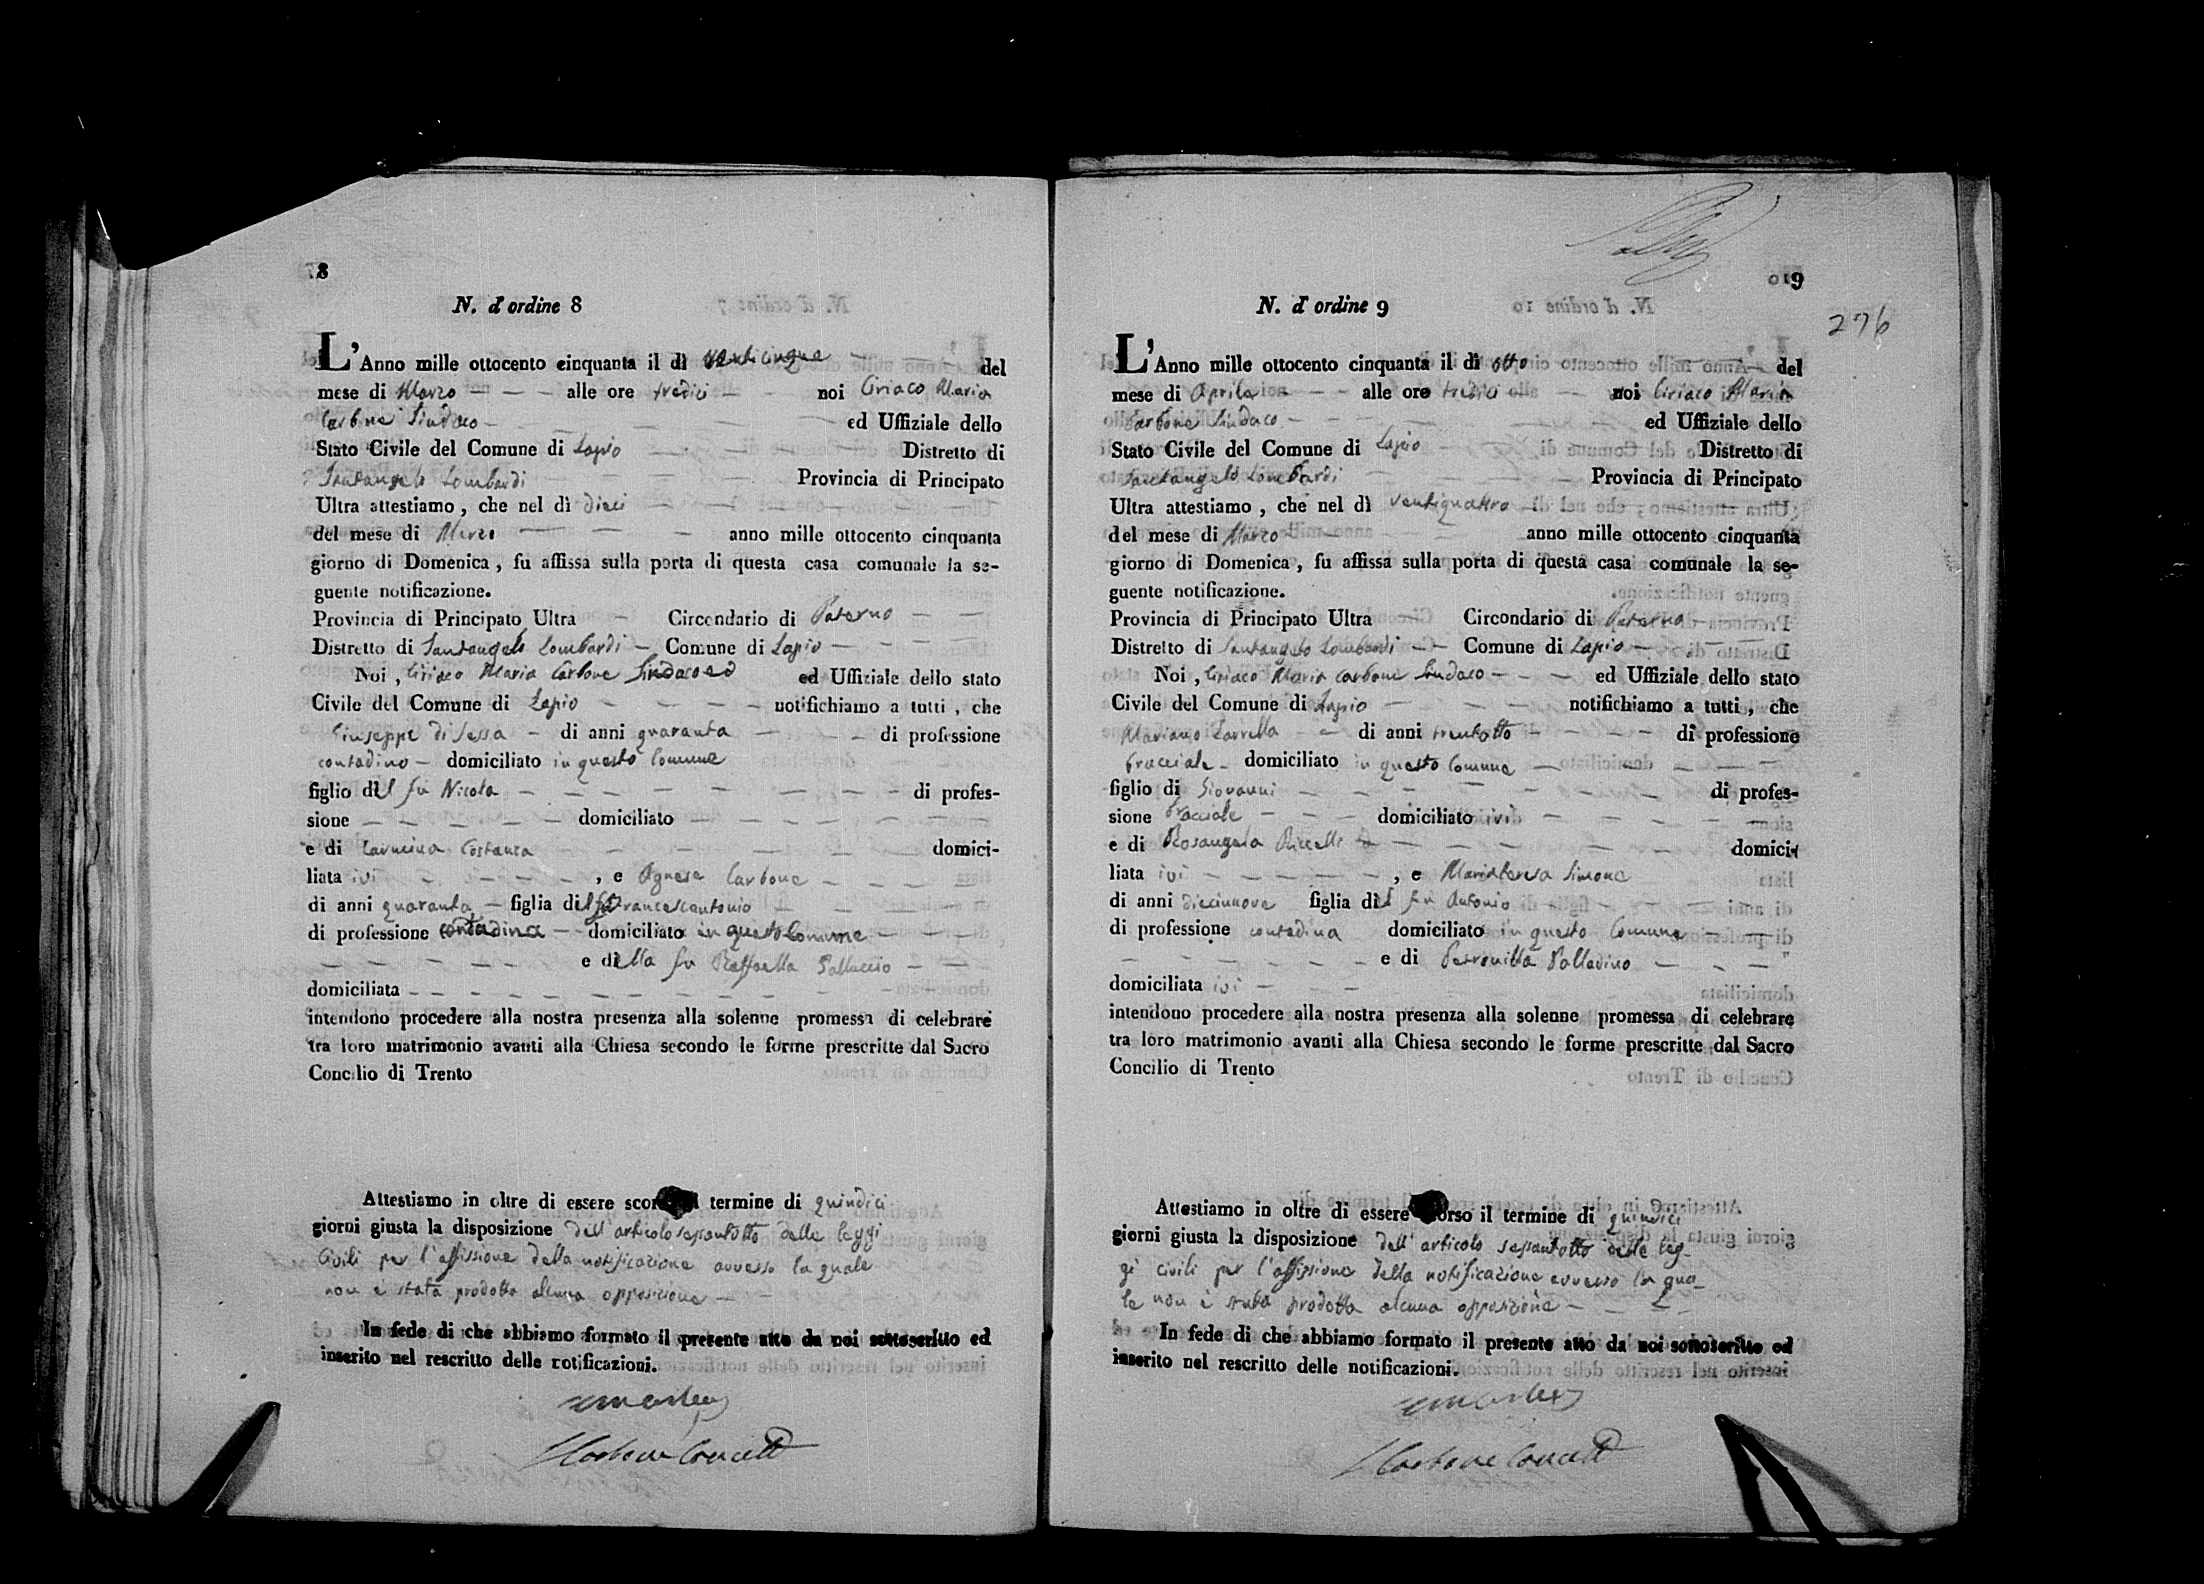 8
N. d'ordine 8
L'Anno mille ottocento cinquanta il dì venticinque del
mese di Marzo alle ore tredici noi Ciriaco Maria
Carbone Sindaco ed Uffiziale dello
Stato Civile del Comune di Lapio Distretto di
Santangelo Lombardi Provincia di Principato
Ultra attestiamo, che nel dì dieci
del mese di Marzo anno mille ottocento cinquanta
giorno di Domenica, fu affissa sulla porta di questa casa comunale la se-
guente notificazione.
Provincia di Principato Ultra Circondario di Paterno
Distretto di Santangelo Lombardi Comune di Lapio
Noi, Ciriaco Maria Carbone Sindaco ed ed Uffiziale dello stato
Civile del Comune di Lapio notifichiamo a tutti, che
Giuseppe di Sessa di anni quaranta di professione
contadino domiciliato in questo Comune
figlio del fu Nicola di profes-
sione domiciliato
e di Carmina Costanza domici-
liata ivi, e Agnese Carbone
di anni quaranta figlia del fu Francescantonio
di professione contadina domiciliato in questo Comune
e della fu Raffaella
domiciliata
intendono procedere alla nostra presenza alla solenne promessa di celebrare
tra loro matrimonio avanti alla Chiesa secondo le forme prescritte dal Sacro
Concilio di Trento
Attestiamo in oltre di essere termine di quindici
giorni giusta la disposizione dell'articolo sessantotto delle leggi
Civili per l'affissione della notificazione avverso la quale
non è stata prodotta alcuna opposizione
In fede di che abbiamo formato il presente atto da noi sottoscritto ed
inserito nel rescritto delle notificazioni.
9
276
N. d'ordine 9
L'Anno mille ottocento cinquanta il dì otto del
mese di Aprile alle ore tredici noi Ciriaco Maria
Carbone Sindaco ed Uffiziale dello
Stato Civile del Comune di Lapio Distretto di
Santangelo Lombardi Provincia di Principato
Ultra attestiamo, che nel dì ventiquattro
del mese di Marzo anno mille ottocento cinquanta
giorno di Domenica, fu affissa sulla porta di questa casa comunale la se-
guente notificazione.
Provincia di Principato Ultra Circondario di Paterno
Distretto di Santangelo Lombardi Comune di Lapio
Noi, Ciriaco Maria Carbone Sindaco ed Uffiziale dello stato
Civile del Comune di Lapio notifichiamo a tutti, che
Mariano di anni trentotto di professione
bracciale domiciliato in questo Comune
figlio di Giovanni di profes-
sione bracciale domiciliato ivi
e di Rosangela domici-
liata ivi, e Mariateresa Simone
di anni diecinnove figlia del fu Antonio
di professione contadina domiciliato in questo Comune
e di Petronilla Palladino
domiciliata ivi
intendono procedere alla nostra presenza alla solenne promessa di celebrare
tra loro matrimonio avanti alla Chiesa secondo le forme prescritte dal Sacro
Concilio di Trento
Attestiamo in oltre di essere scorso il termine di quindici
giorni giusta la disposizione dell'articolo sessantotto delle leg-
gi civili per l'affissione della notificazione avverso la qua-
le non è stata prodotta alcuna opposizione
In fede di che abbiamo formato il presente atto da noi sottoscritto ed
inserito nel rescritto delle notificazioni.